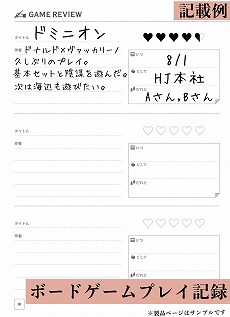 記載例
GAME REVIEW
タイトル
ドミニオン
作者
ドナルド×ヴァッカリーノ
久しぶりのプレイ。
基本セットと陰謀を遊んだ。
次は海辺も遊びたい。
いつ
8/1
どこで
HJ本社
だれと
Aさん,Bさん
タイトル
作者
いつ
どこで
だれと
タイトル
作者
いつ
どこで
だれと
ボードゲームプレイ記録
※製品ページはサンプルです